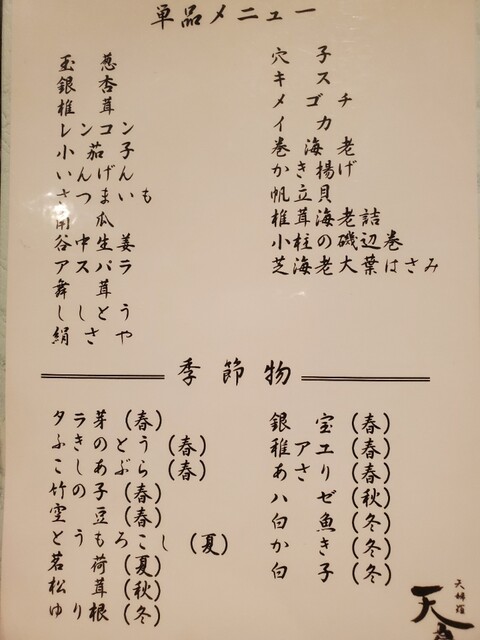 単品メニュー
玉葱
銀杏
椎茸
レンコン
小茄子
いんげん
さつまいも
南瓜
谷中生姜
アスパラ
舞茸
ししとう
絹さや
穴子
キス
メゴチ
イカ
巻海老
かき揚げ
帆立貝
椎茸海老詰
小柱の磯辺巻
芝海老大葉はさみ
季節物
タラ芽(春)
ふきのとう(春)
こしあぶら(春)
竹の子(春)
空豆(春)
とうもろこし(夏)
茗荷(夏)
松茸(秋)
ゆり根(冬)
銀宝(春)
稚アユ(春)
あさり(春)
ハゼ(秋)
白魚(冬)
かき(冬)
白子(冬)
天婦羅
天